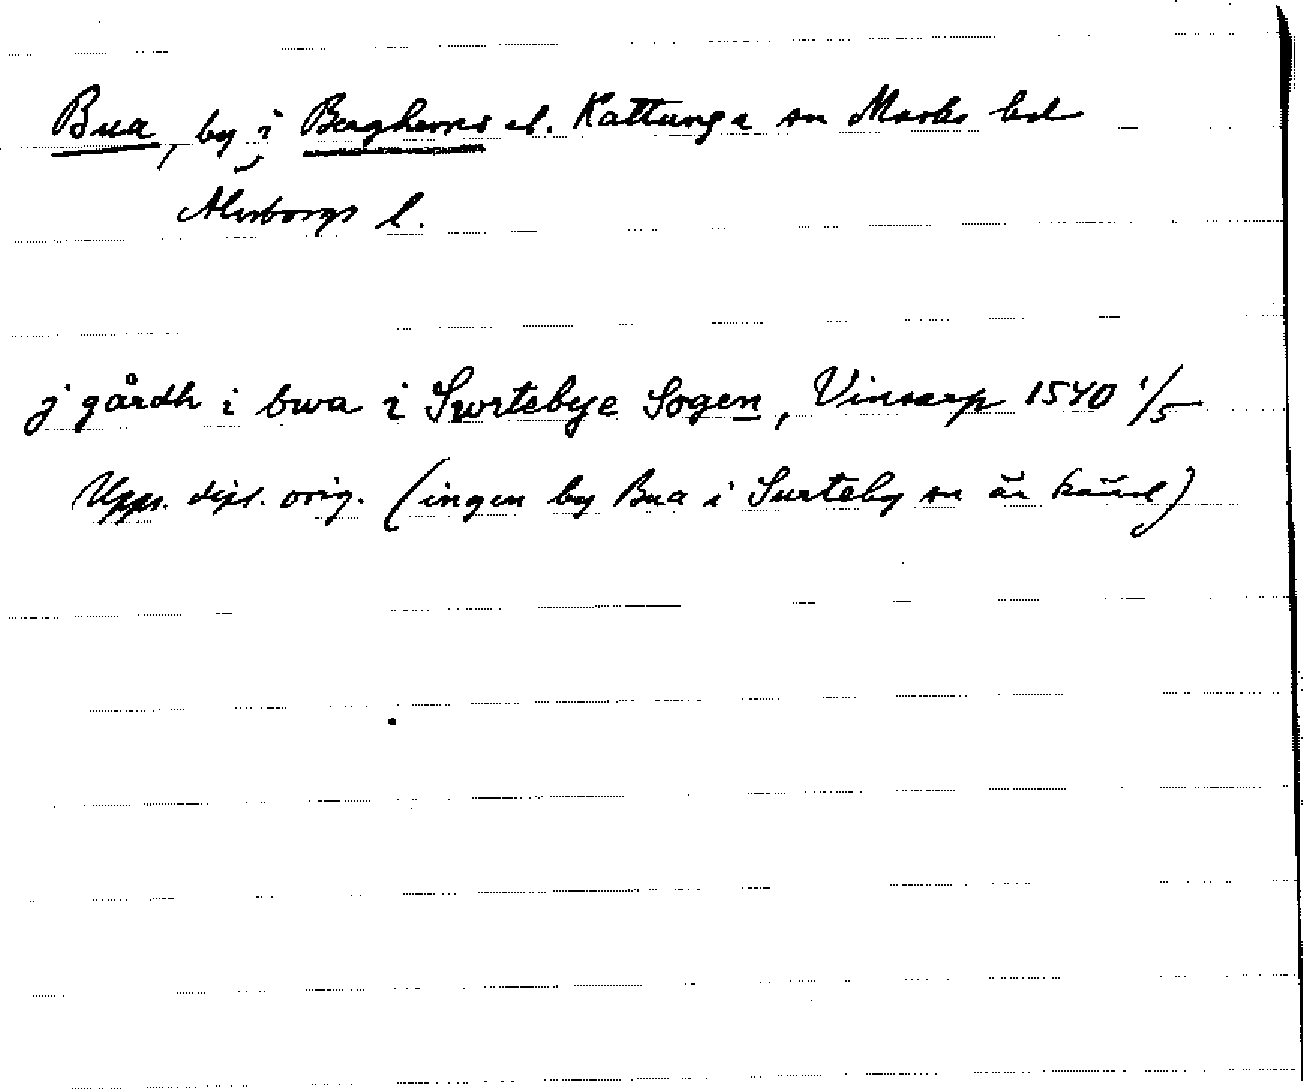 Bua, by i Berghems el. Kattunga sn Marks hd
Älvsborgs l.
j gårdh i bwa i Swrtebye Sogen, Vinsarp 1540 1/5
Upps. dipl. orig. (ingen by Bua i Surteby sn är känd)